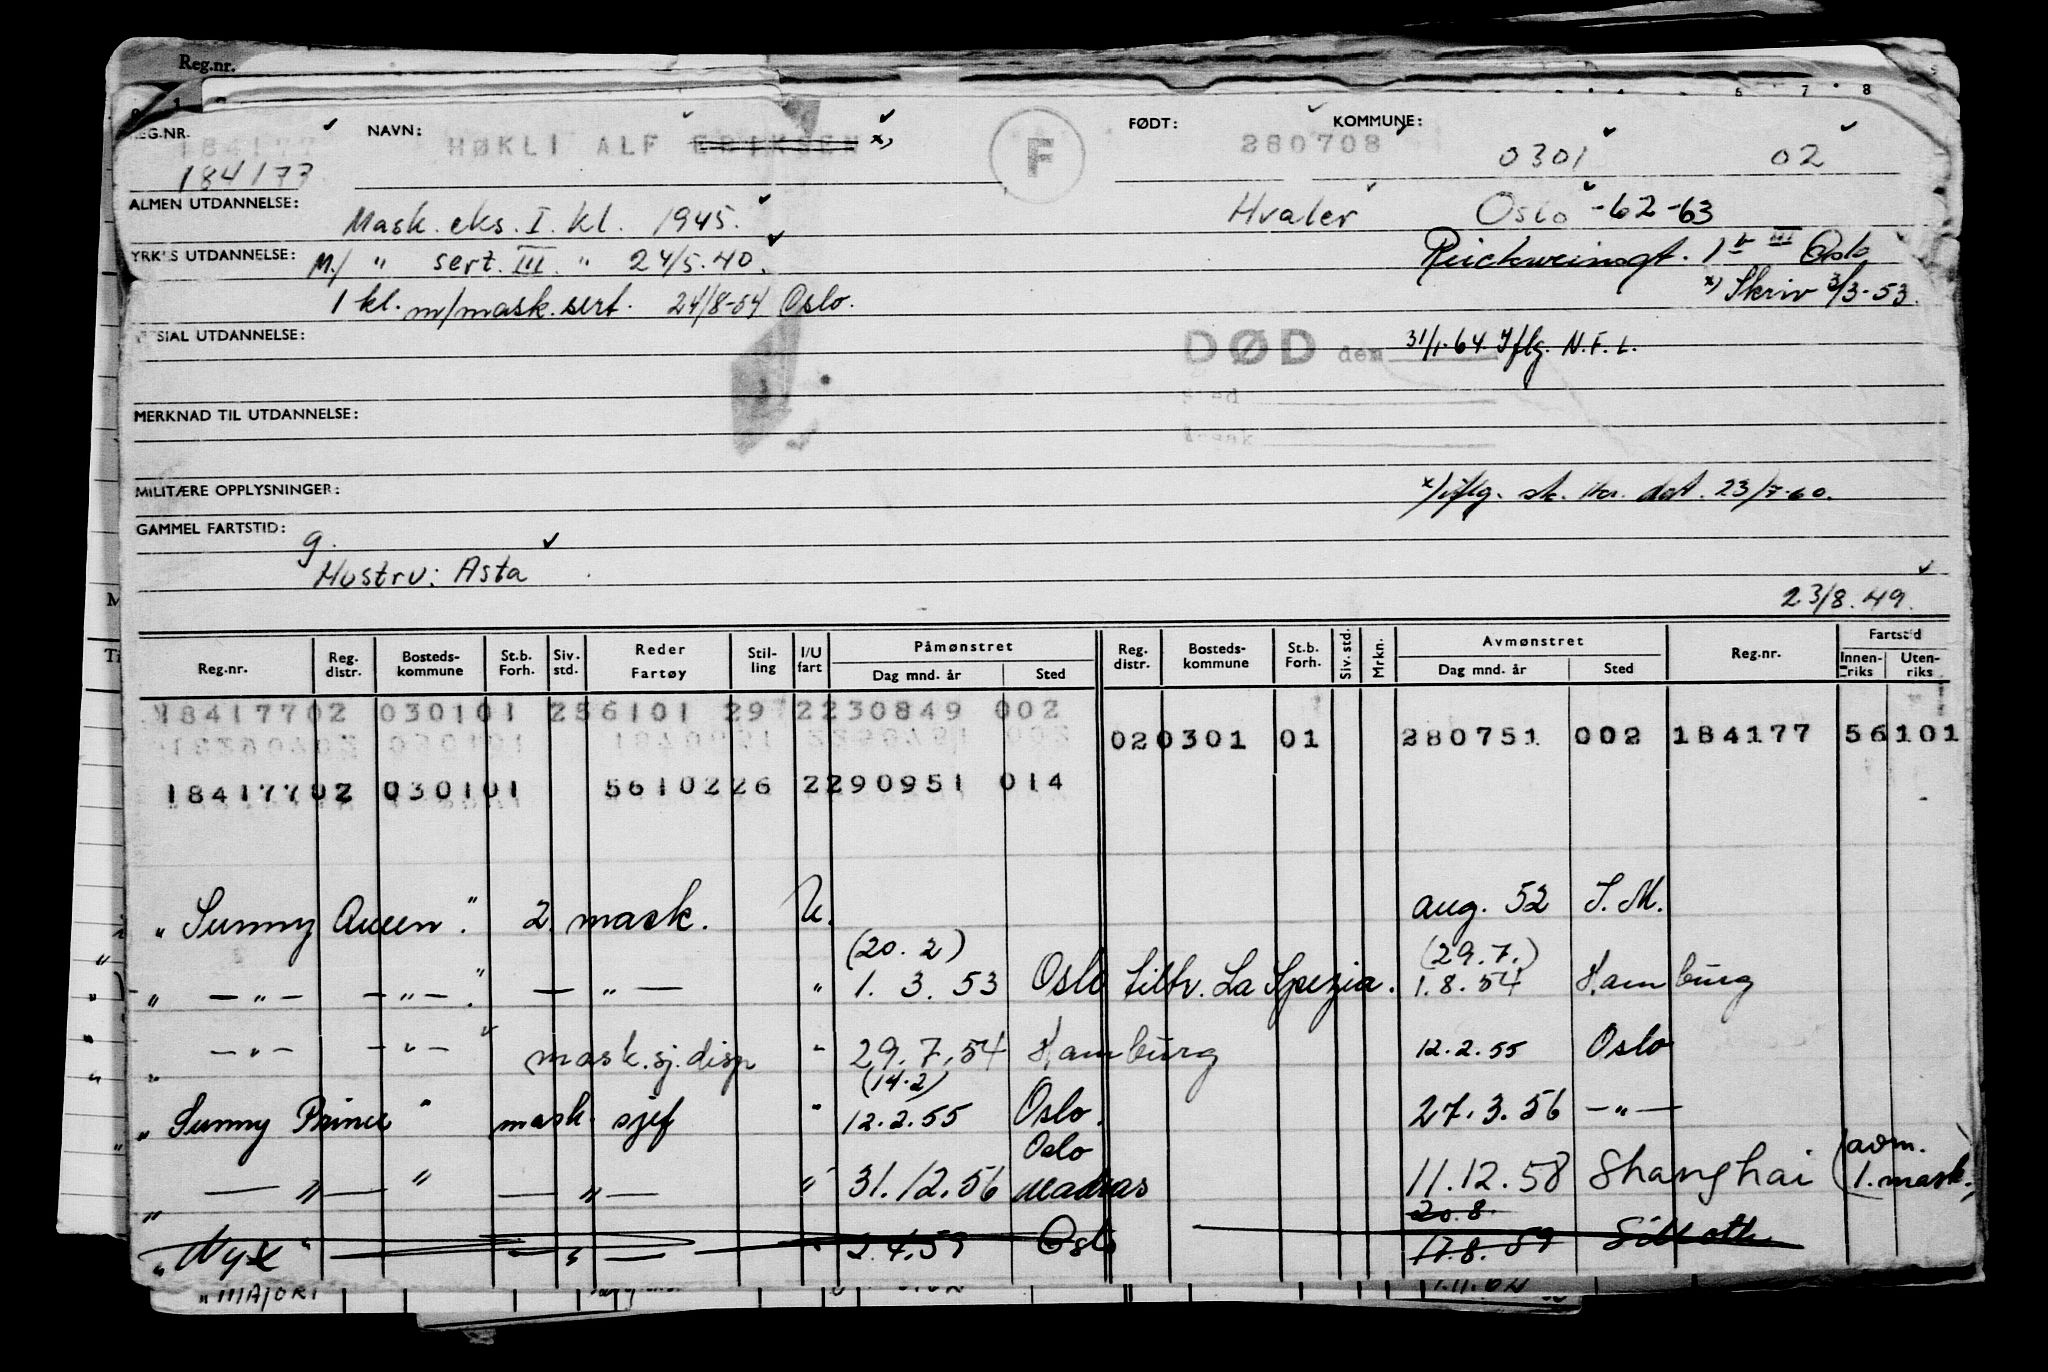 Reg.nr.
REG.NR. NAVN: FØDT: KOMMUNE:
184177 HØKLI ALF ERIKSEN x) F 280708 0301 02
184177
ALMEN UTDANNELSE: Mask. eks. I. kl. 1945. Hvaler Oslo -62-63
YRKES UTDANNELSE: M/ " sert. III " 24/5.40. 1 III Oslo
1 kl. m/mask. sert. 24/8-54 Oslo. x) Skriv 3/3-53.
SPESIAL UTDANNELSE: DØD den 31/1-64. Iflg. N.F.L.
MERKNAD TIL UTDANNELSE:
MILITÆRE OPPLYSNINGER: x) iflg. sk. dat. 23/7-60.
GAMMEL FARTSTID: g.
Hustru: Asta
23/8.49.
Reg.nr. Reg. distr. Bosteds- kommune St.b. Forh. Siv. std. Reder Fartøy Stil- ling I/U fart Påmønstret Dag mnd. år Sted Reg. distr. Bosteds- kommune St.b. Forh. Siv. std. Mrkn. Avmønstret Dag mnd. år Sted Reg.nr. Fartstid Innen- riks Uten- riks
18417702 030101 256101 29 2230849 002
020301 01 280751 002 184177 56101
18417702 030101 5610226 2290951 014
"Sunny Queen". 2 mask. U. aug. 52 S.M.
(20.2) (29.7.)
" —"— —"—." — " — " 1. 3. 53 Oslo tiltr. La Spezia. 1.8.54 Hamburg
" —"— —"—" mask.sj.disp " 29.7.54 Hamburg 12.2.55 Oslo
(14.2)
"Sunny Prince" mask. sjef " 12.2.55 Oslo. 27.3.56 —"—
Oslo
" —"— " —"— " 31.12.56 Madras 11.12.58 Shanghai (avm. 1. mask.)
20.8.
"Nyx" —"— " 2.4.59 Oslo 17.8.59 Silloth
"MAJORI